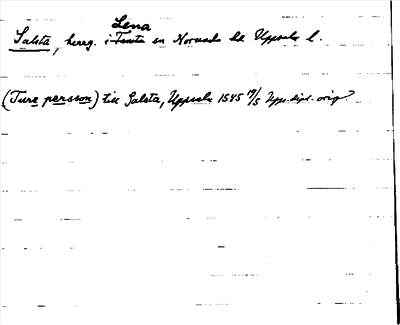 Lena
Salsta, herrg. i Tensta sn Norunda hd Uppsala l.
(Ture persson) till Salsta, Uppsala 1545 19/5 Upps. dipl. orig.